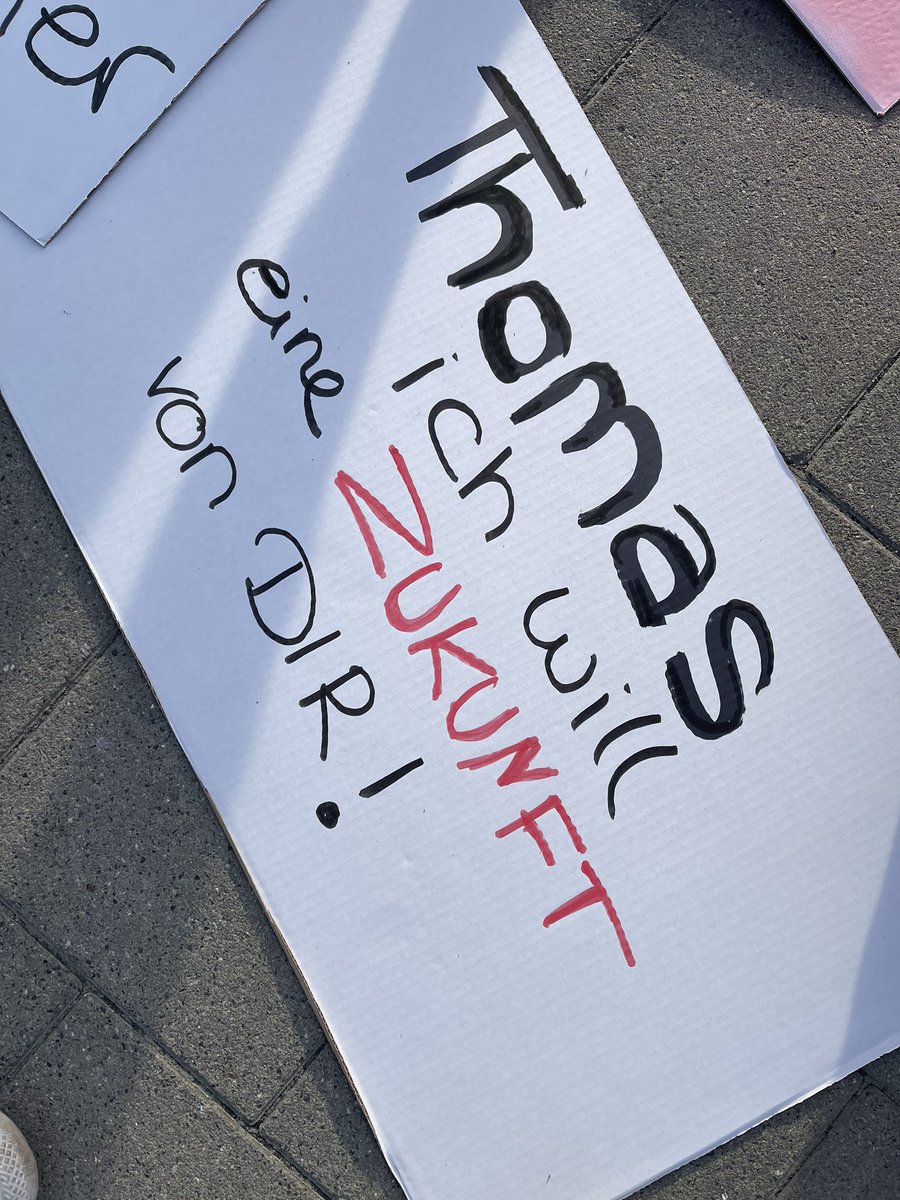 er
Thomas
ich will
eine ZUKUNFT
von DIR!